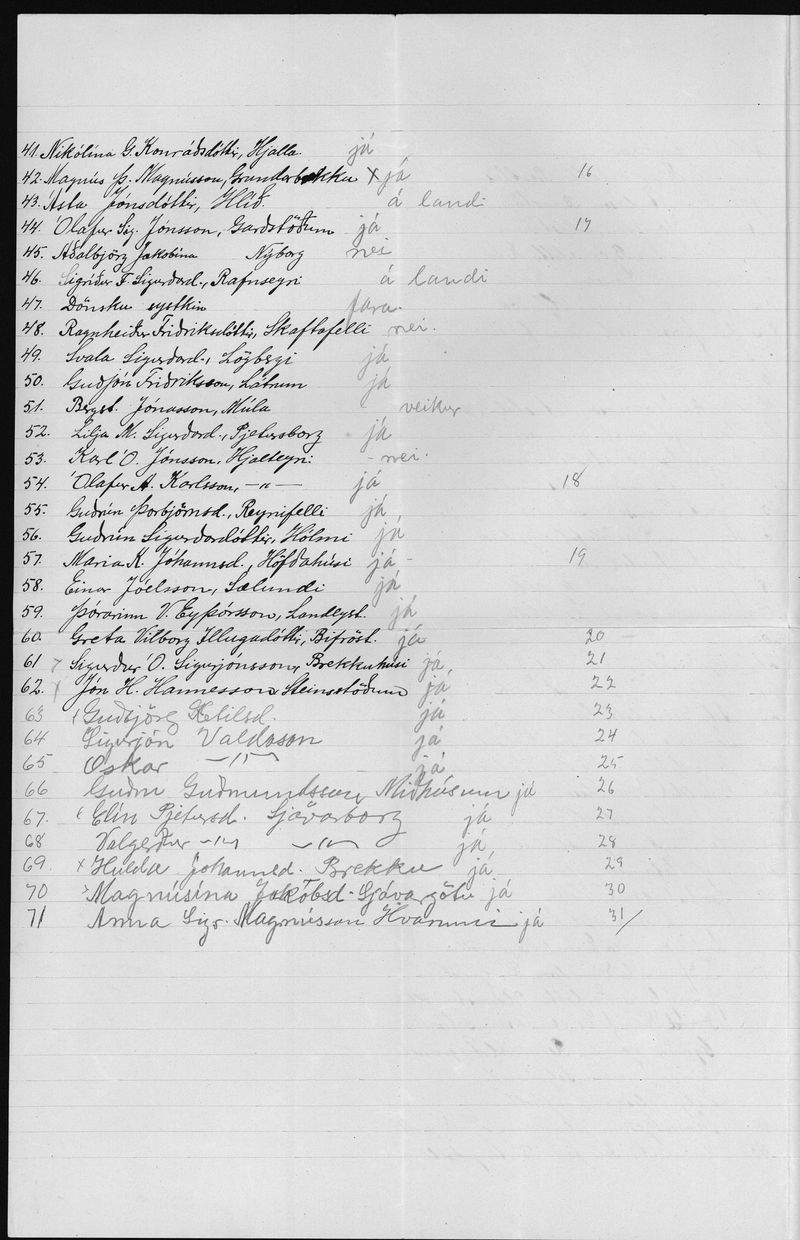 41. Nikólína G. Konráðsdóttir, Hjalla. já
42. Magnús Þ. Magnússon, Grundarbrekku X já 16
43. Ásta Jónsdóttir, Hlíð. á landi
44. Ólafur Sig. Jónsson, Gardstöðum já 17
45. Aðalbjörg Jakobína Nýborg nei
46. Sigríður F. Sigurðard., Rafnseyri á landi
47. Dönsku systkin fara.
48. Ragnheiður Friðriksdóttir, Skaftafelli nei.
49. Svala Sigurðard., Lögbergi já
50. Guðjón Friðriksson, Látrum já
51. Bergst. Jónasson, Múla veikur
52. Lilja M. Sigurðard., Pjetursborg já
53. Karl Ó. Jónsson, Hjalteyri - nei.
54. Ólafur A. Karlsson, -"- já 18
55. Guðrún Þorbjörnsd., Reynifelli já
56. Guðrún Sigurðardóttir, Hólmi já
57. María K. Jóhannsd., Höfðahúsi já - 19
58. Einar Jóelsson, Sælundi já
59. Þórarinn V. Eyþórsson, Landlyst. já
60. Greta Vilborg Illugadóttir, Bifröst. já 20
61 Sigurður Ó. Sigurjónsson, Brekkuhúsi já, 21
62. Jón H. Hannesson, Steinsstöðum já 22
63 Guðbjörg Ketilsd. já 23
64 Sigurjón Valdason já 24
65 Oskar -"- já 25
66 Guðm Guðmundsson, Miðhúsum já 26
67. Elín Pjetursd. Sjávarborg já 27
68 Valgerður -"- -"- já 28
69. X Hulda Jóhannsd. Brekku já 29
70 Magnúsína Jakobsd. Sjávargötu já 30
71 Anna Sigr. Magnússon Hvammi já 31/